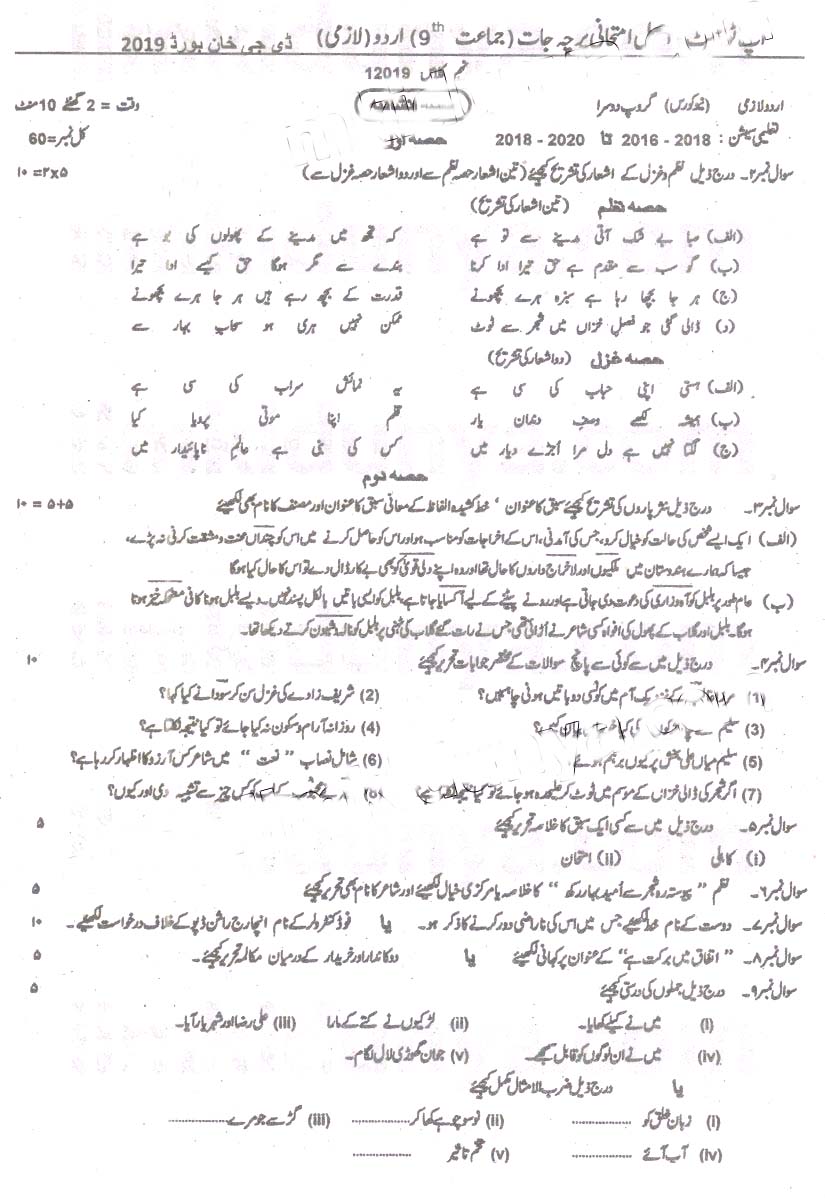 امتحانی پرچہ جات (جماعت 9th) اردو (لازمی) ڈی جی خان بورڈ 2019
12019
اردو لازمی (نیو کورس) گروپ دوسرا وقت = 2 گھنٹے 10 منٹ
تعلیمی سیشن : 2018 - 2016 تا 2020 - 2018 حصہ اول کل نمبر=60
سوال نمبر ۲۔ درج ذیل نظم و غزل کے اشعار کی تشریح کیجئے (تین اشعار حصہ نظم سے اور دو اشعار حصہ غزل سے) ۱۰ =۲x۵
حصہ نظم (تین اشعار کی تشریح)
(الف) صبا بے شک آتی مدینے سے تو ہے کہ تجھ میں مدینے کے پھولوں کی بو ہے
(ب) گو سب سے مقدم ہے حق تیرا ادا کرنا بندے سے مگر ہوگا حق کیسے ادا تیرا
(ج) ہر جا بچھا رہا ہے سبزہ ہرے بچھونے قدرت کے بچھ رہے ہیں ہر جا ہرے بچھونے
(د) ڈالی گئی جو فصل خزاں میں شجر سے ٹوٹ ممکن نہیں ہری ہو سحاب بہار سے
حصہ غزل (دو اشعار کی تشریح)
(الف) ہستی اپنی حباب کی سی ہے یہ نمائش سراب کی سی ہے
(ب) ہمیشہ لکھے وصفِ دندانِ یار قلم اپنا موتی پرویا کیا
(ج) لگتا نہیں ہے دل مرا اُجڑے دیار میں کس کی بنی ہے عالمِ ناپائیدار میں
حصہ دوم
سوال نمبر ۳۔ درج ذیل نثر پاروں کی تشریح کیجئے سبق کا عنوان ' خط کشیدہ الفاظ کے معانی سبق کا عنوان اور مصنف کا نام بھی لکھیئے ۱۰ = ۵+۵
(الف) ایک ایسے شخص کی حالت کو خیال کرو، جس کی آمدنی، اس کے اخراجات کو مناسب ہو اور اس کو حاصل کرنے میں اس کو چنداں محنت و مشقت کرنی نہ پڑے،
جیسا کہ ہمارے ہندوستان میں ملکیوں اور لاخراج داروں کا حال تھا اور وہ اپنے دلی قویٰ کو بھی بے کار ڈال دے تو اس کا حال کیا ہوگا
(ب) عام طور پر بلبل کو آہ و زاری کی دعوت دی جاتی ہے اور رونے پیٹنے کے لیے اُکسایا جاتا ہے، بلبل کو ایسی باتیں بالکل پسند نہیں۔ ویسے بلبل ہونا کافی مضحکہ خیز ہوتا
ہوگا۔ بلبل اور گلاب کے پھول کی افواہ کسی شاعر نے اُڑائی تھی جس نے رات گئے گلاب کی ٹہنی پر بلبل کو نالہ و شیون کرتے دیکھا تھا۔
سوال نمبر ۴۔ درج ذیل میں سے کوئی سے پانچ سوالات کے مختصر جوابات تحریر کیجئے ۱۰
(1) کے نزدیک آم میں کونسی دو باتیں ہونی چاہئیں؟ (2) شریف زادے کی غزل سن کر سودا نے کیا کہا؟
(3) سلیم سے کی کیا (4) روزانہ آرام و سکون نہ کیا جائے تو کیا نتیجہ نکلتا ہے؟
(5) سلیم میاں علی بخش پر کیوں برہم ہوئے (6) شامل نصاب "نعت" میں شاعر کس آرزو کا اظہار کر رہا ہے؟
(7) اگر شجر کی ڈالی خزاں کے موسم میں ٹوٹ کر علیحدہ ہو جائے تو کیا نے کس چیز سے تشبیہ دی اور کیوں؟
سوال نمبر ۵۔ درج ذیل میں سے کسی ایک سبق کا خلاصہ تحریر کیجئے ۵
(i) کاہلی (ii) امتحان
سوال نمبر ۶۔ نظم "پیوستہ رہ شجر سے اُمید بہار رکھ" کا خلاصہ یا مرکزی خیال لکھیئے اور شاعر کا نام بھی تحریر کیجئے ۵
سوال نمبر ۷۔ دوست کے نام خط لکھیئے جس میں اس کی ناراضی دور کرنے کا ذکر ہو۔ یا فوڈ کنٹرولر کے نام انچارج راشن ڈپو کے خلاف درخواست لکھیئے۔ ۱۰
سوال نمبر ۸۔ "اتفاق میں برکت ہے" کے عنوان پر کہانی لکھیئے یا دوکاندار اور خریدار کے درمیان مکالمہ تحریر کیجئے۔ ۵
سوال نمبر ۹۔ درج ذیل جملوں کی درستی کیجئے ۵
(i) میں نے کیلے کھایا۔ (ii) لڑکیوں نے کتے کے مارا (iii) علی رضا اور شہریار آیا۔
(iv) میں نے ان لوگوں کو قابل سمجھے۔ (v) جوان گھوڑی لال لگام۔
یا درج ذیل ضرب الامثال مکمل کیجئے
(i) زبان خلق کو .............. (ii) نو سو چوہے کھا کر .............. (iii) گڑ سے جو مرے ..............
(iv) آب آئے .............. (v) تخم تاثیر ..............